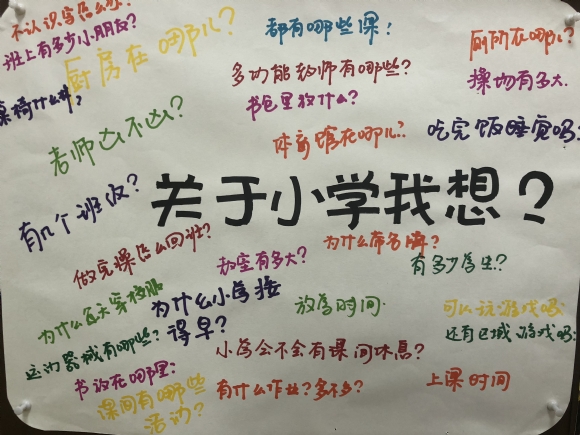 不认识字怎么办?
都有哪些课?
班上有多少小朋友?
厨房在哪儿?
厕所在哪儿?
多功能教师有哪些?
操场有多大.
书包里放什么?
老师凶不凶?
体育馆在哪儿?
吃完饭睡觉吗?
有几个班级?
关于小学我想?
做完操怎么回班?
教室有多大?
为什么带名牌?
有多少学生?
为什么每天穿校服
为什么小学接
得早?
放学时间.
可以玩游戏吗?
还有区域游戏吗?
运动器械有哪些?
小学会不会有课间休息?
书议在哪里?
课间有哪些
活动?
有什么作业?多不多?
上课时间